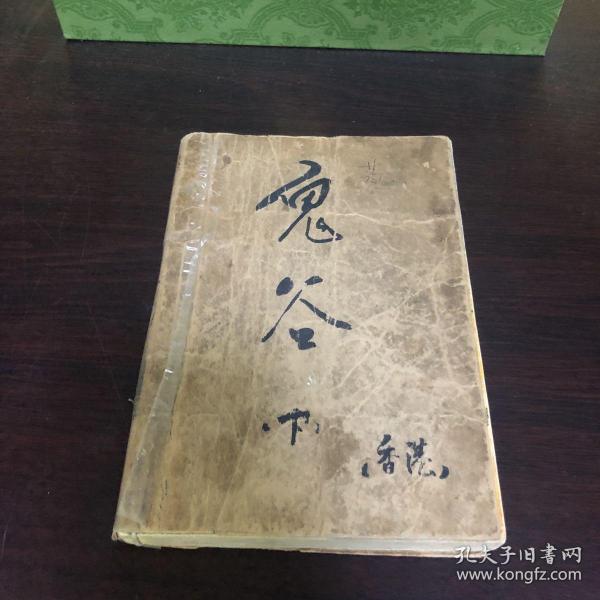 鬼谷
(下)
(香港)
孔夫子旧書网
www.kongfz.com